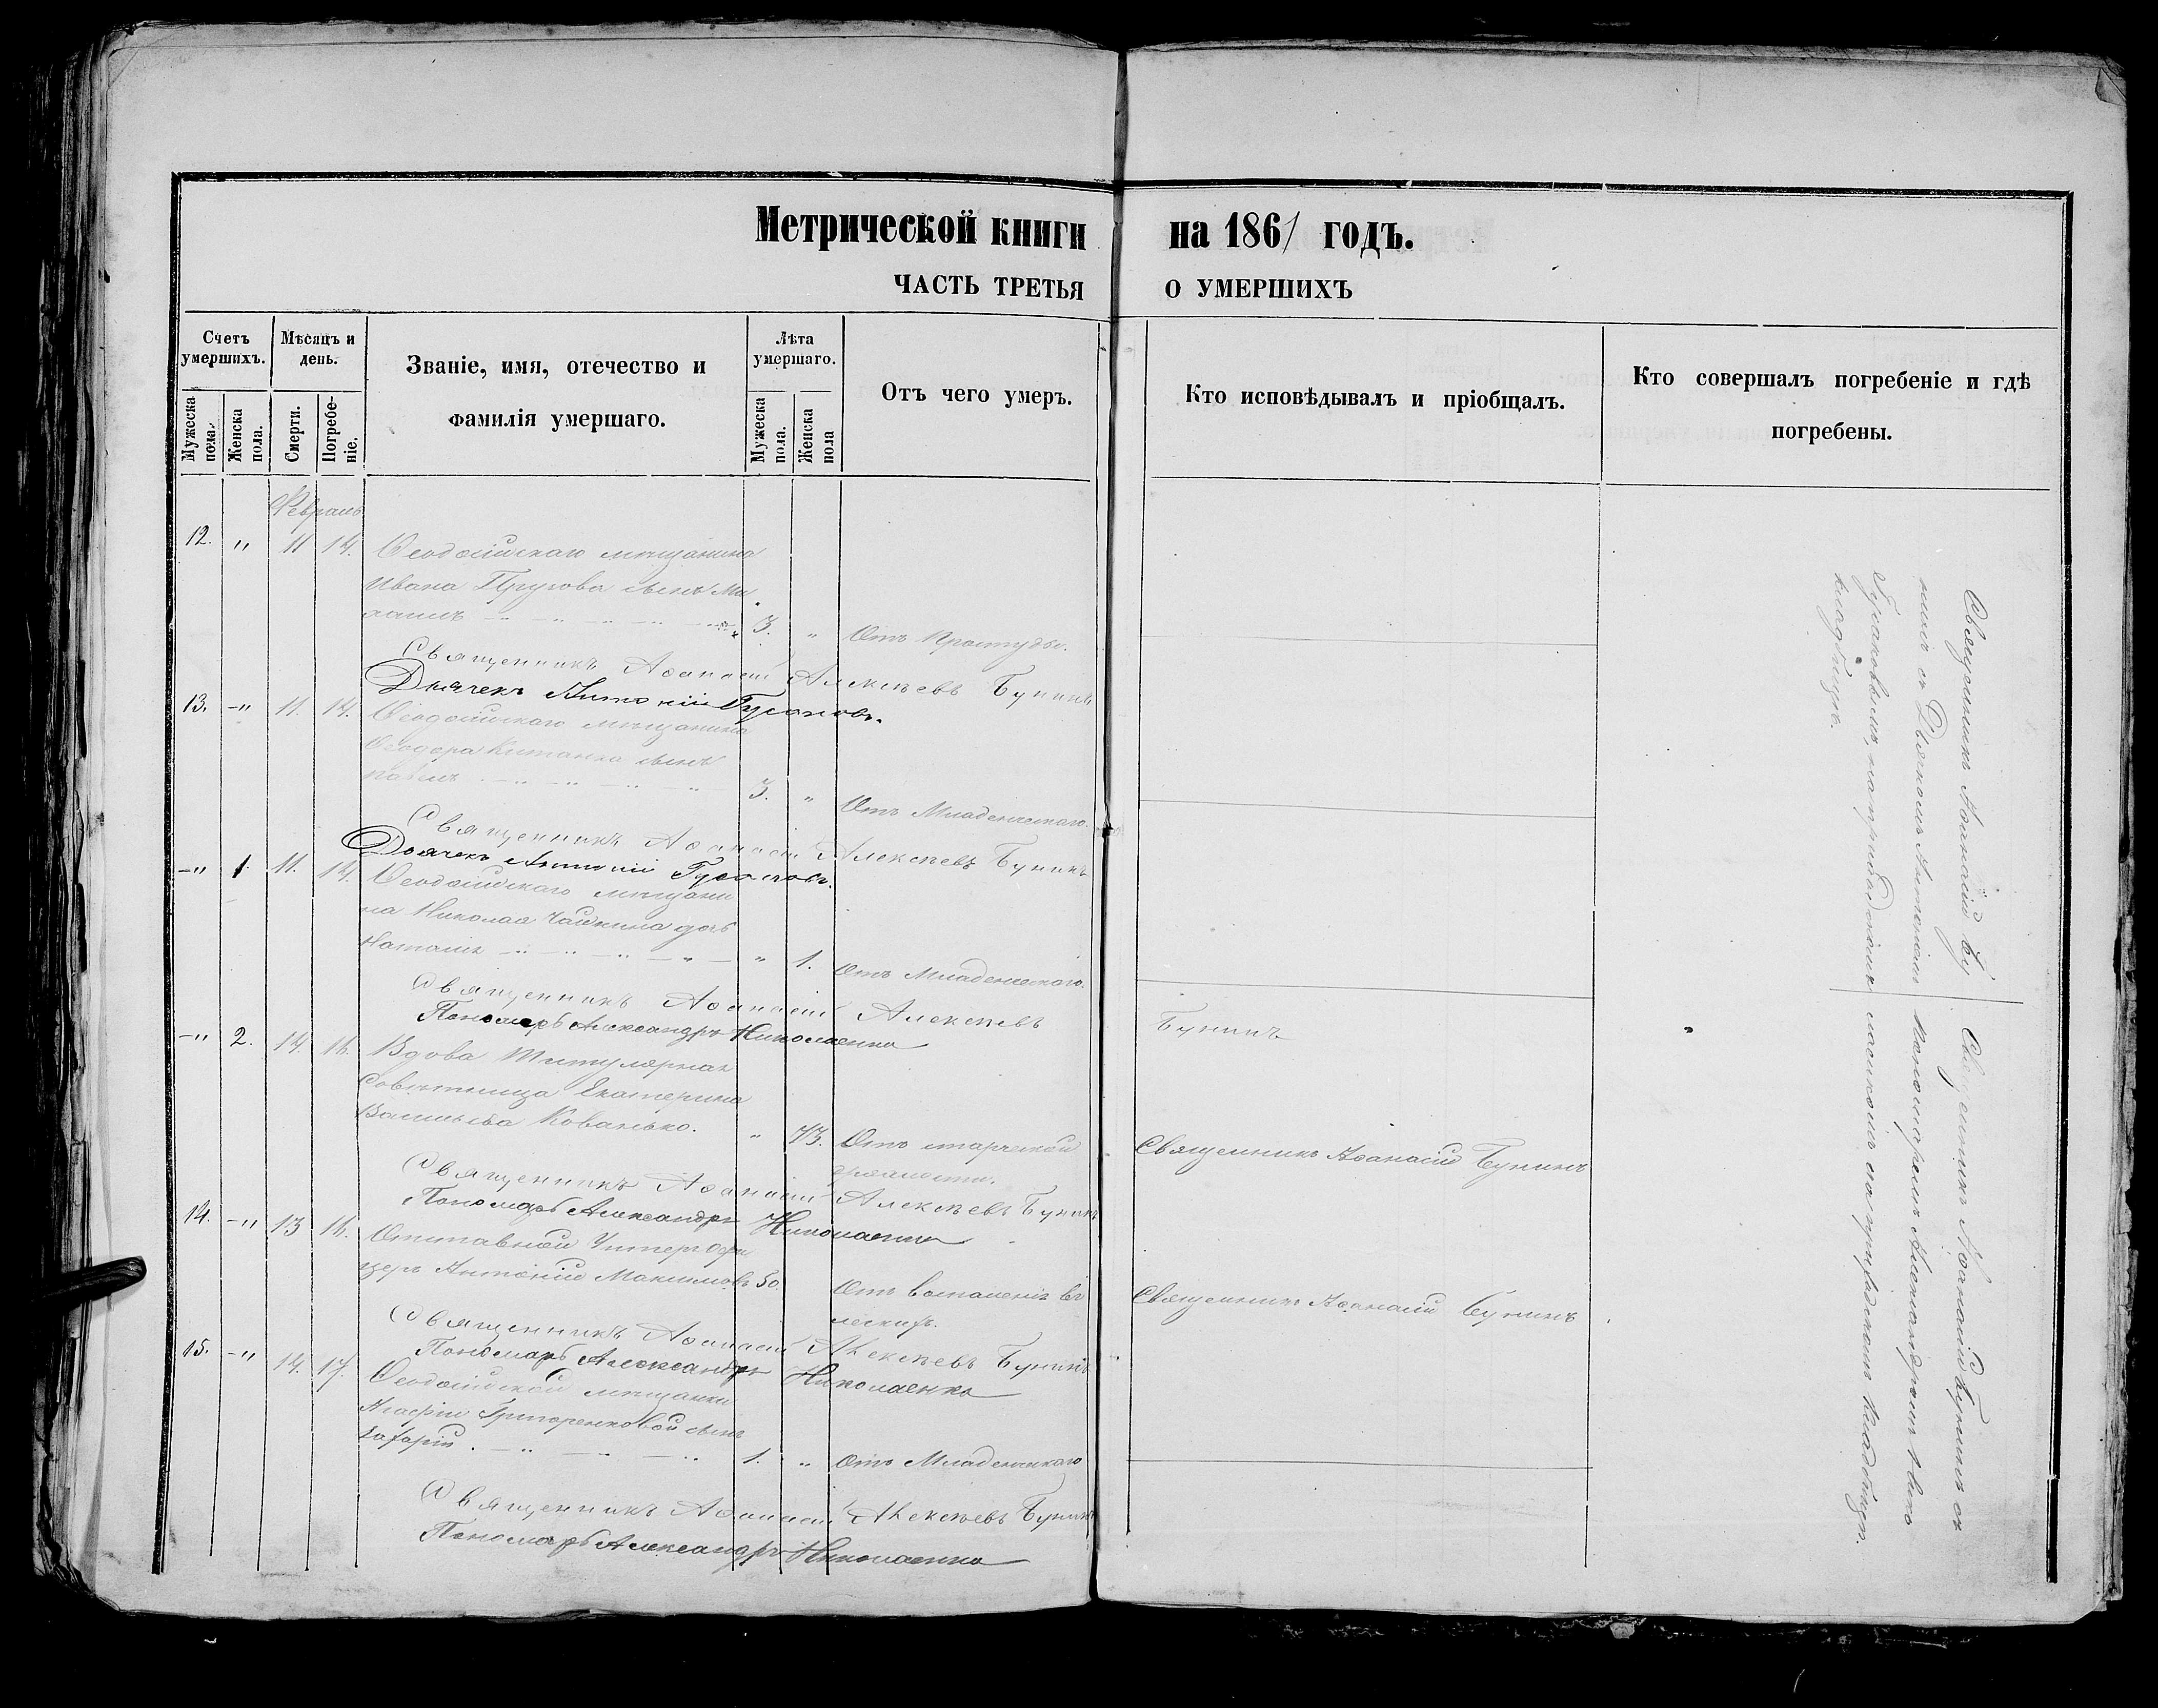 Метрической книги на 1861 годъ.
ЧАСТЬ ТРЕТЬЯ О УМЕРШИХЪ
Счетъ умершихъ.
Мужеска пола.
Женска пола.
Мѣсяцъ и день.
Смерти.
Погребе-
ніе.
Званіе, имя, отечество и
фамилія умершаго.
Лѣта умершаго.
Мужеска пола.
Женска пола
Отъ чего умеръ.
Кто исповѣдывалъ и пріобщалъ.
Кто совершалъ погребеніе и гдѣ
погребены.
Февраль
12. " 11 14. Ѳеодосійскаго мѣщанина
Ивана сынъ Ми
хаилъ 3. " Отъ простуды.
Священникъ Аѳанасій Алексѣевъ Бунинъ
Дьячекъ Антоній Гусаковъ.
13. " 11. 14. Ѳеодосійскаго мѣщанина
Ѳеодора сынъ
Павелъ 3. " Отъ Младенческаго.
Священникъ Аѳанасій Алексѣевъ Бунинъ
Дьячекъ Антоній Гусаковъ.
" 1. 11. 14. Ѳеодосійскаго мѣщани
на Николая дочь
Наталія " 1. Отъ Младенческаго.
Священникъ Аѳанасій Алексѣевъ Бунинъ
Пономарь Александръ Николаенко
" 2. 14. 16. Вдова Титулярная
Совѣтница Екатерина
Васильева Кованько. " 73. Отъ старческой
дряхлости.
Священникъ Аѳанасій Бунинъ
Священникъ Аѳанасій Алексѣевъ Бунинъ
Пономарь Александръ Николаенко
14. " 13 16. Отставной Унтеръ Офи
церъ Антоній Максимовъ 50. Отъ воспаленія въ
легкихъ.
Священникъ Аѳанасій Бунинъ
Священникъ Аѳанасій Алексѣевъ Бунинъ
Пономарь Александръ Николаенко
15. " 14. 17. Ѳеодосійской мѣщанки
Агафіи Григоренковой сынъ
Захарій 1. " Отъ Младенческаго
Священникъ Аѳанасій Алексѣевъ Бунинъ
Пономарь Александръ Николаенко
Священникъ Аѳанасій Бу
нинъ съ Дьячкомъ Антоніемъ
Гусаковымъ, на
кладбищѣ.
Священникъ Аѳанасій Бунинъ съ
Пономаремъ Александромъ
кладбищѣ.